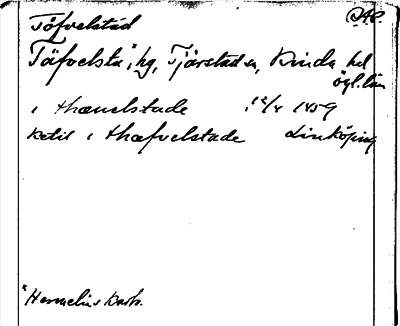 Töfvelstad DAL.
Töfvelsta*, hg, Tjärstad sn, Kinda hd
ögl. län
i thæuelstade 12/8 1459
ketil i thæfvelstade Linköping
*Hermelins kart.